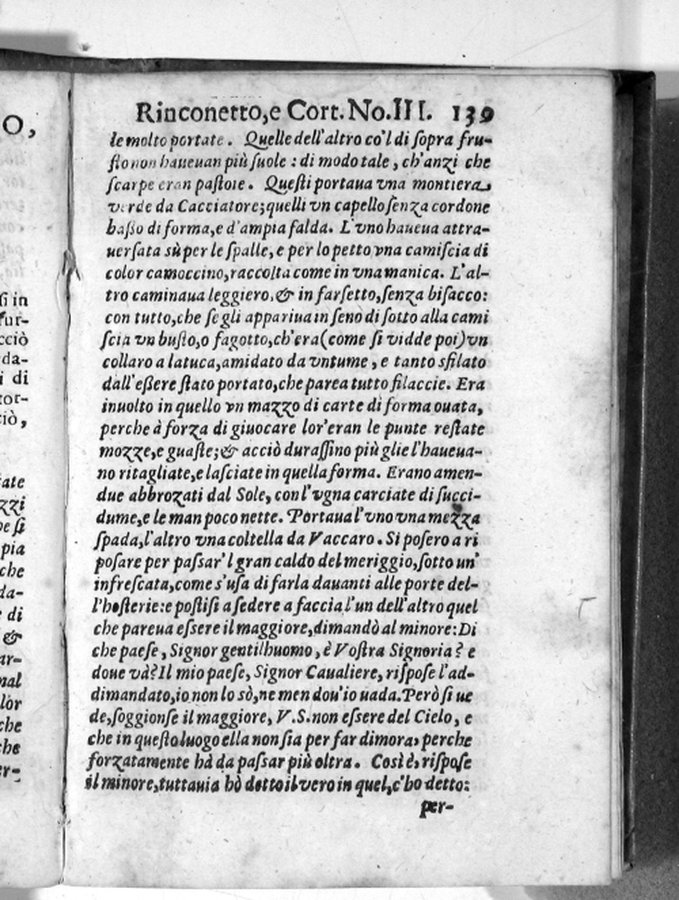 O,
ſi in
fur-
cciò
da-
i di
tor-
ciò,
ate
zzi
pe ſi
pia
che
da-
e di
&
ar-
nal
lor
che
che
er-
Rinconetto, e Cort. No. III. 139
le molto portate. Quelle dell'altro co'l di ſopra fru-
ſto non haueuan più ſuole : di modo tale, ch'anzi che
ſcarpe eran paſtoie. Queſti portaua vna montiera
verde da Cacciatore; quelli vn capello ſenza cordone
baſſo di forma, e d'ampia falda. L'vno haueua attra-
uerſata sù per le ſpalle, e per lo petto vna camiſcia di
color camoccino, raccolta come in vna manica. L'al-
tro caminaua leggiero, & in farſetto, ſenza biſacco:
con tutto, che ſe gli appariua in ſeno di ſotto alla cami
ſcia vn buſto, o fagotto, ch'era (come ſi vidde poi) vn
collaro a latuca, amidato da vntume, e tanto sfilato
dall'eſſere ſtato portato, che parea tutto filaccie. Era
inuolto in quello vn mazzo di carte di forma ouata,
perche à forza di giuocare lor'eran le punte reſtate
mozze, e guaſte; & acciò duraſſino più glie l'haueua-
no ritagliate, e laſciate in quella forma. Erano amen-
due abbrozati dal Sole, con l'vgna carciate di ſucci-
dume, e le man poco nette. Portaua l'vno vna mezza
ſpada, l'altro vna coltella da Vaccaro. Si poſero a ri
poſare per paſſar'l gran caldo del meriggio, ſotto un'
infreſcata, come s'uſa di farla dauanti alle porte del-
l'hoſterie: e poſtiſi a ſedere a faccia l'un dell'altro quel
che pareua eſſere il maggiore, dimandò al minore: Di
che paeſe, Signor gentilhuomo, è Voſtra Signoria? e
doue và? Il mio paeſe, Signor Caualiere, riſpoſe l'ad-
dimandato, io non lo sò, ne men dou'io uada. Però ſi ue
de, ſoggionſe il maggiore, V.S. non eſſere del Cielo, e
che in queſto luogo ella non ſia per far dimora, perche
forzatamente hà da paſſar più oltra. Così è, riſpoſe
il minore, tuttauia hò detto il vero in quel, c'ho detto:
per-